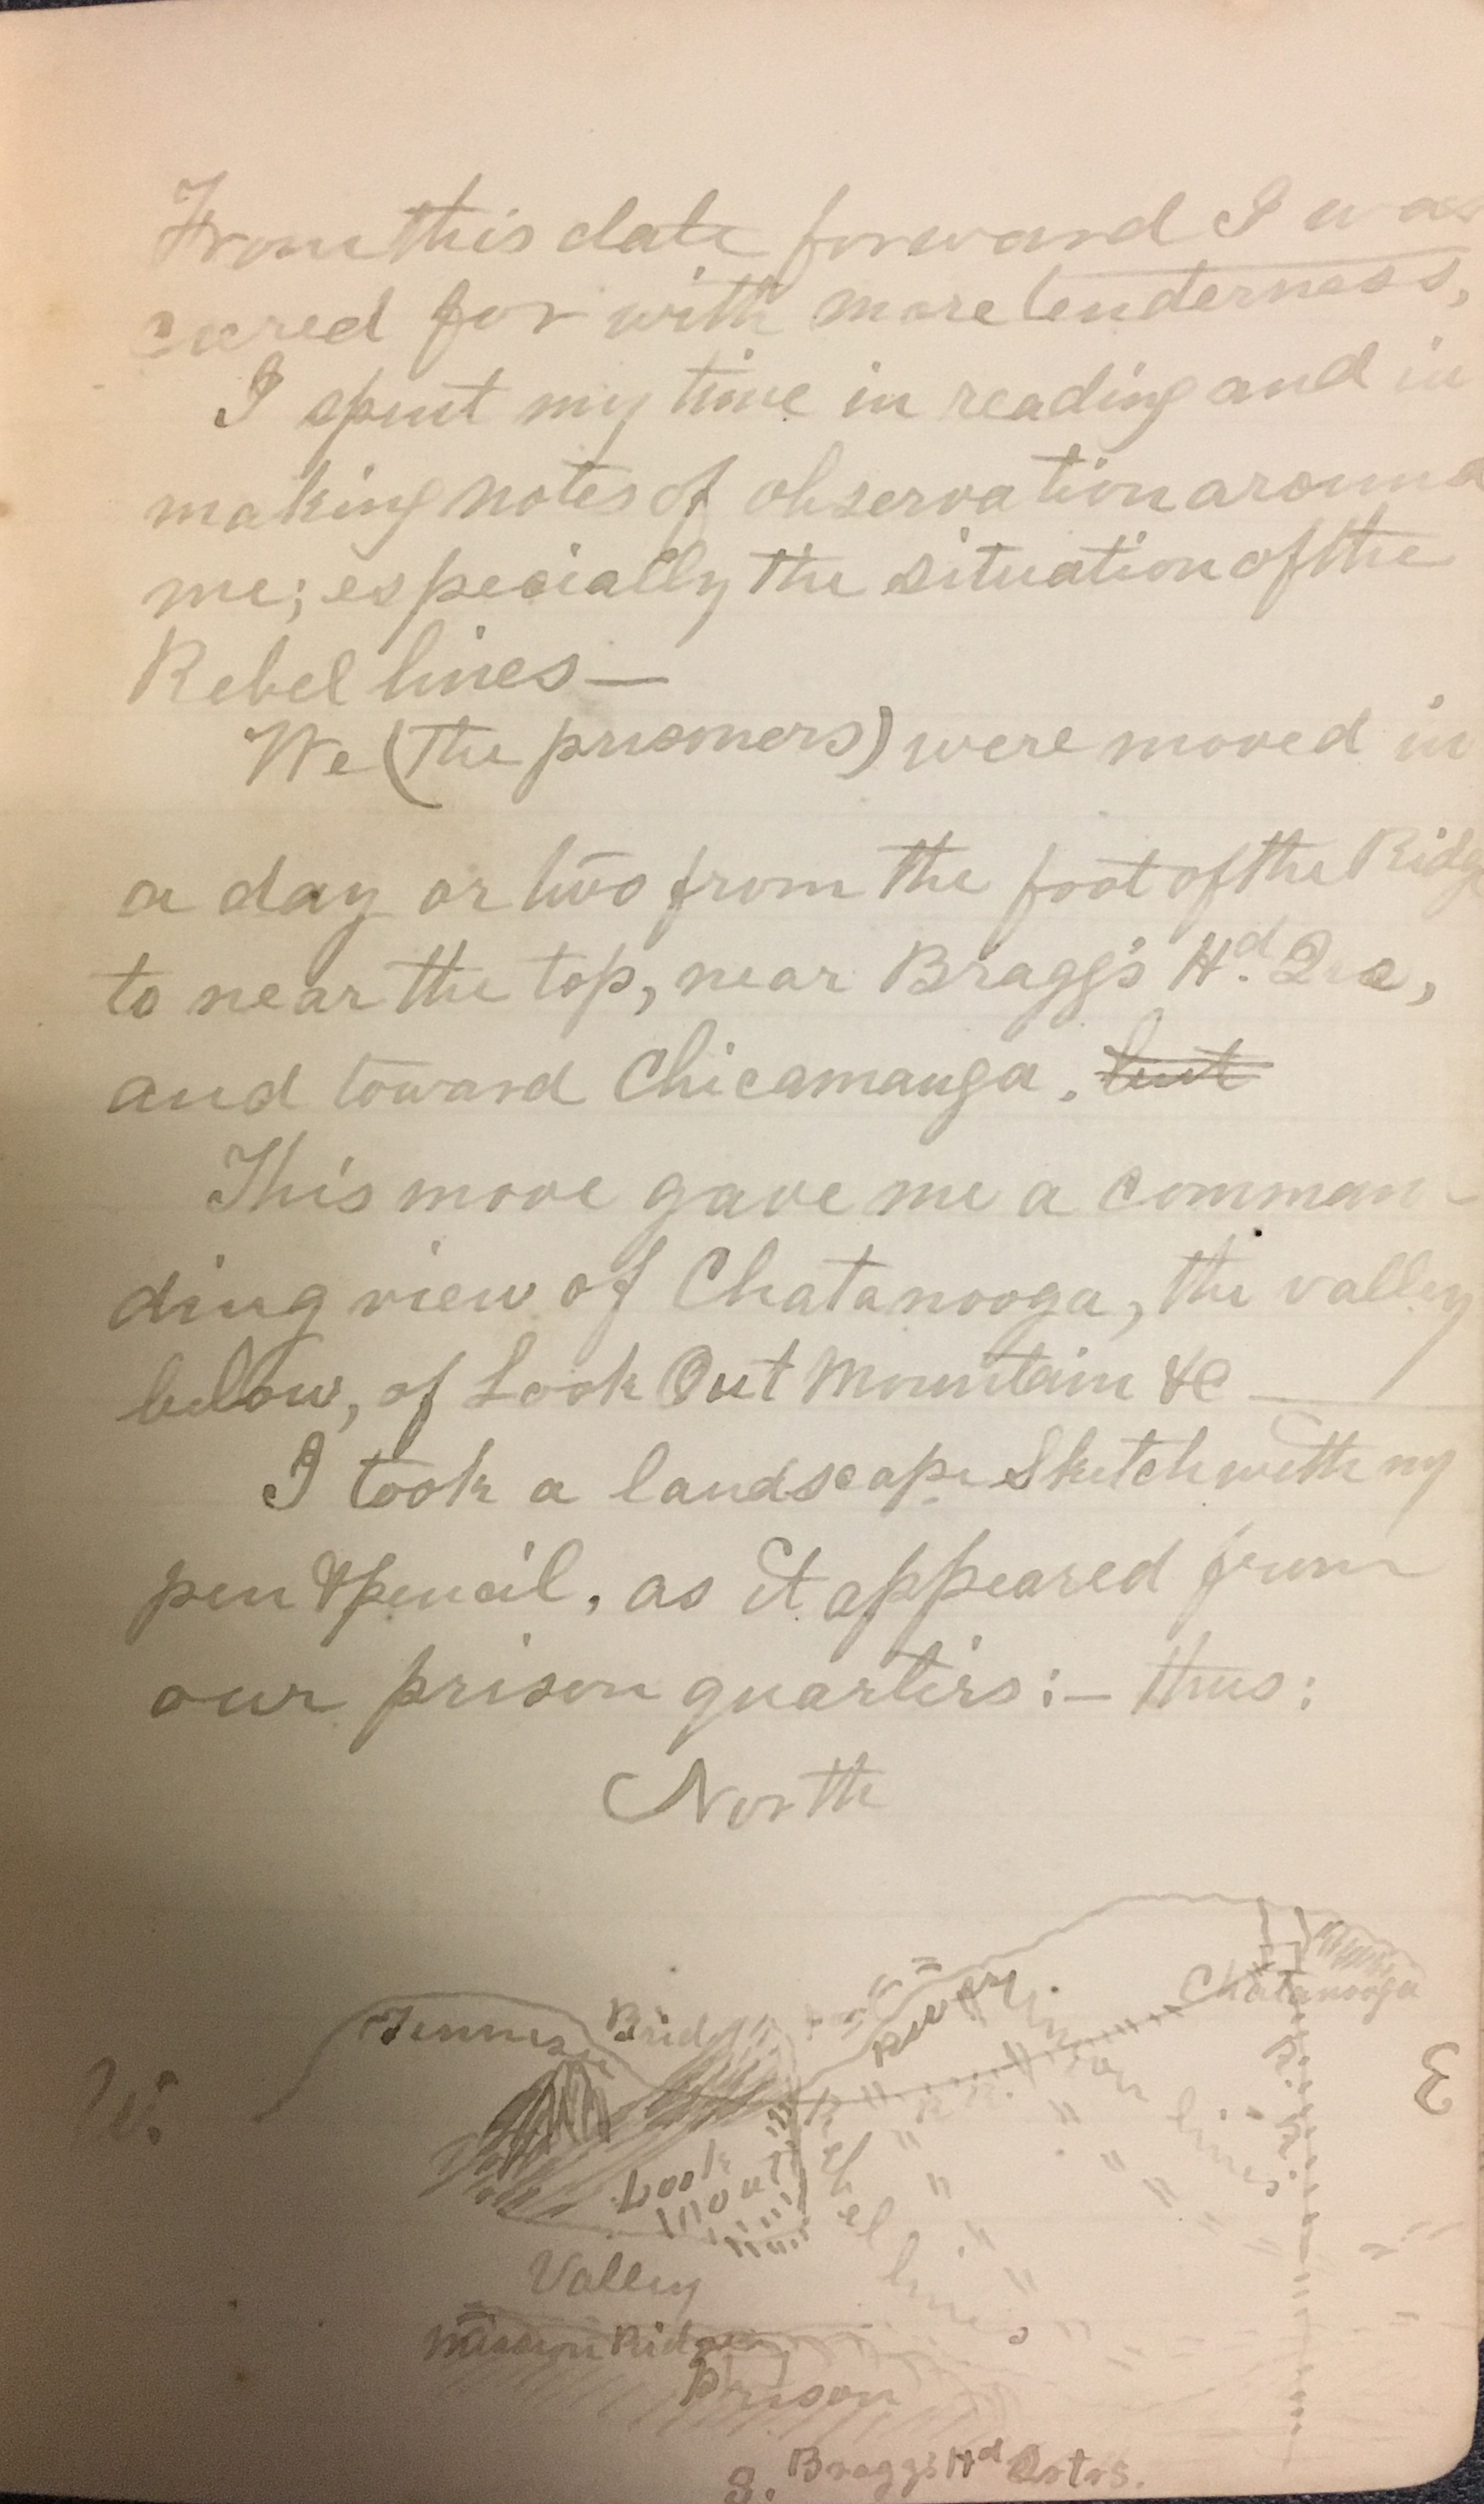 From this date forward I was
cared for with more tenderness,
I spent my time in reading and in
making notes of observation around
me; especially the situation of the
Rebel lines—
We (the prisoners) were moved in
a day or two from the foot of the Ridge
to near the top, near Bragg's Hd. Qrs,
and toward Chicamauga. but
This move gave me a comman-
ding view of Chatanooga, the valley
below, of Look Out Mountain &c —
I took a landscape Sketch with my
pen & pencil, as it appeared from
our prison quarters:— thus:
North
Chatanooga
Tennessee
River
Union lines
R. R.
R. R.
W.
E
Look
Out
Mount
Rebel lines
Valley
Mission Ridge
Prison
S. Bragg's Hd Qrtrs.